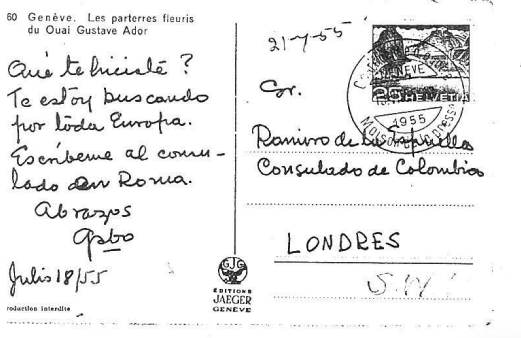 60 Genève. Les parterres fleuris
du Quai Gustave Ador
Qué te hiciste?
Te estoy buscando
por toda Europa.
Escríbeme al consu-
lado en Roma.
Abrazos
Gabo
Julio 18/55
roduction interdite
GJG
EDITIONS
JAEGER
GENÈVE
21-7-55
GENÈVE
1955
25 HELVETIA
Sr.
Ramiro de la Espriella
Consulado de Colombia
LONDRES
S.W.